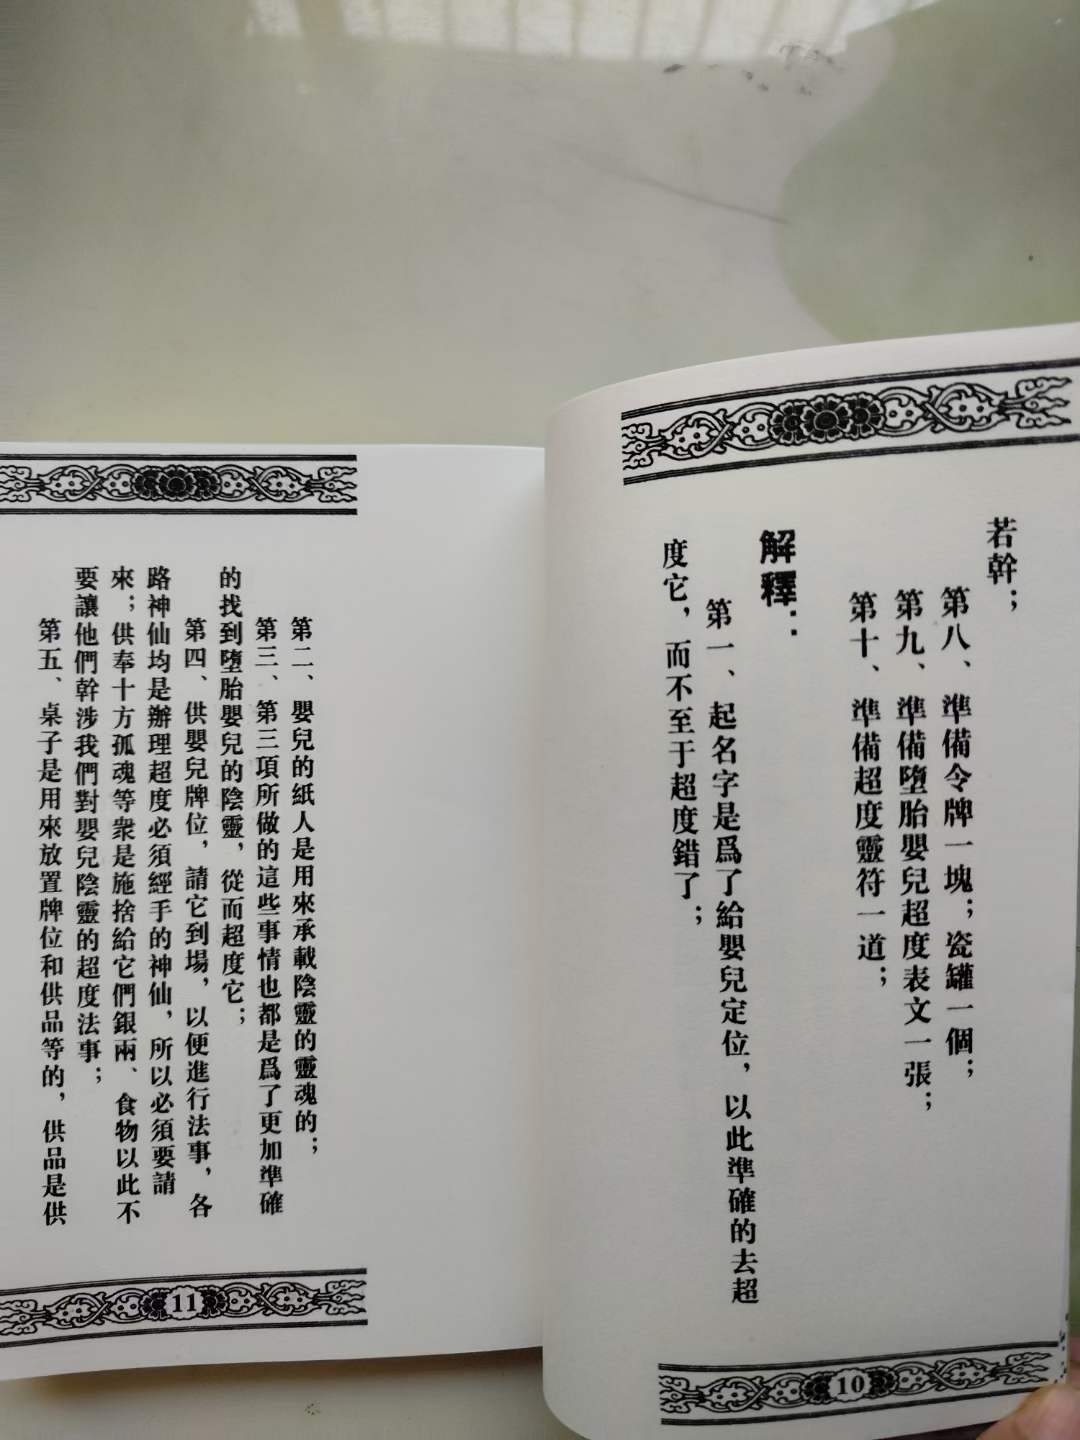 若幹；
第八、準備令牌一塊；瓷罐一個；
第九、準備墮胎嬰兒超度表文一張；
第十、準備超度靈符一道；
解釋：
第一、起名字是爲了給嬰兒定位，以此準確的去超
度它，而不至于超度錯了；
10
第二、嬰兒的紙人是用來承載陰靈的靈魂的；
第三、第三項所做的這些事情也都是爲了更加準確
的找到墮胎嬰兒的陰靈，從而超度它；
第四、供嬰兒牌位，請它到場，以便進行法事，各
路神仙均是辦理超度必須經手的神仙，所以必須要請
來；供奉十方孤魂等衆是施捨給它們銀兩、食物以此不
要讓他們幹涉我們對嬰兒陰靈的超度法事；
第五、桌子是用來放置牌位和供品等的，供品是供
11